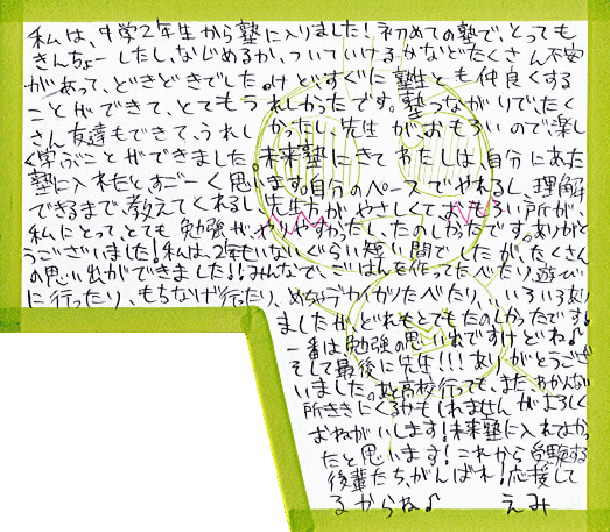 私は、中学2年生から塾に入りました！初めての塾で、とっても
きんちょーしたし、なじめるか、ついていけるかなどたくさん不安
があって、どきどきでした。けど、すぐに塾生とも仲良くする
ことができて、とてもうれしかったです。塾つながりで、たく
さん友達もできて、うれしかったし、先生がおもろいので楽し
く学ぶことができました。未来塾にきてわたしは、自分にあた
塾に入れたと、すごーく思います。自分のペースでやれるし、理解
できるまで、教えてくれるし先生方が、やさしくておもろい所が、
私にとって、とても勉強がやりやすかったし、たのしかたです。ありがと
うございました！私は、2年もいないぐらい短い間でしたが、たくさん
の思い出ができました！！みんなで、ごはんを作ってたべたり、遊び
に行ったり、もちなげ行ったり、めちゃデカイカツたべたり、いろいろあり
ましたが、どれもとてもたのしかったです♪
一番は勉強の思い出ですけどね♪
そして最後に先生！！！ありがとうござ
いました。高校行っても、また、わかんない
所ききにくるかもしれませんがよろしく
おねがいします！未来塾に入れてよかっ
たと思います！これから受験する
後輩たち、がんばれ！応援して
るからね♪ えみ